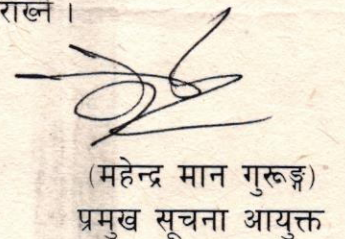 राख्ने ।
(महेन्द्र मान गुरूङ्ग)
प्रमुख सूचना आयुक्त